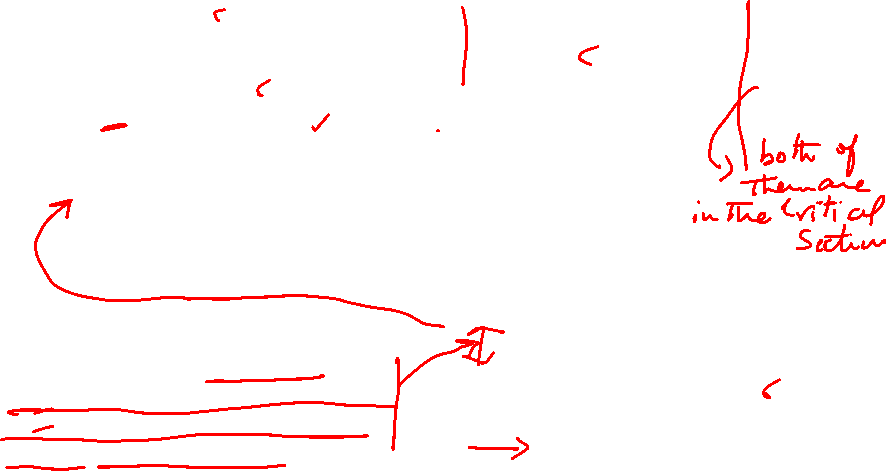 both of
them are
in the critical
Section
I